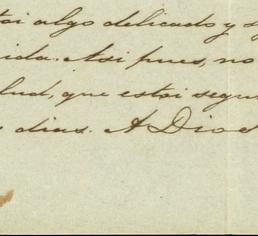 toi algo delicado y s
ida. Asi pues, no
lud, que estoi segu
dias. A Dios